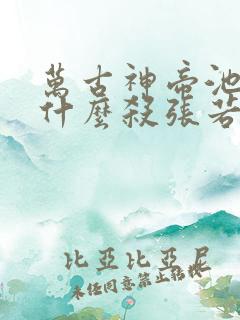 萬古神帝池
什麼殺張若
比亞比亞尼
未經同意禁止轉載